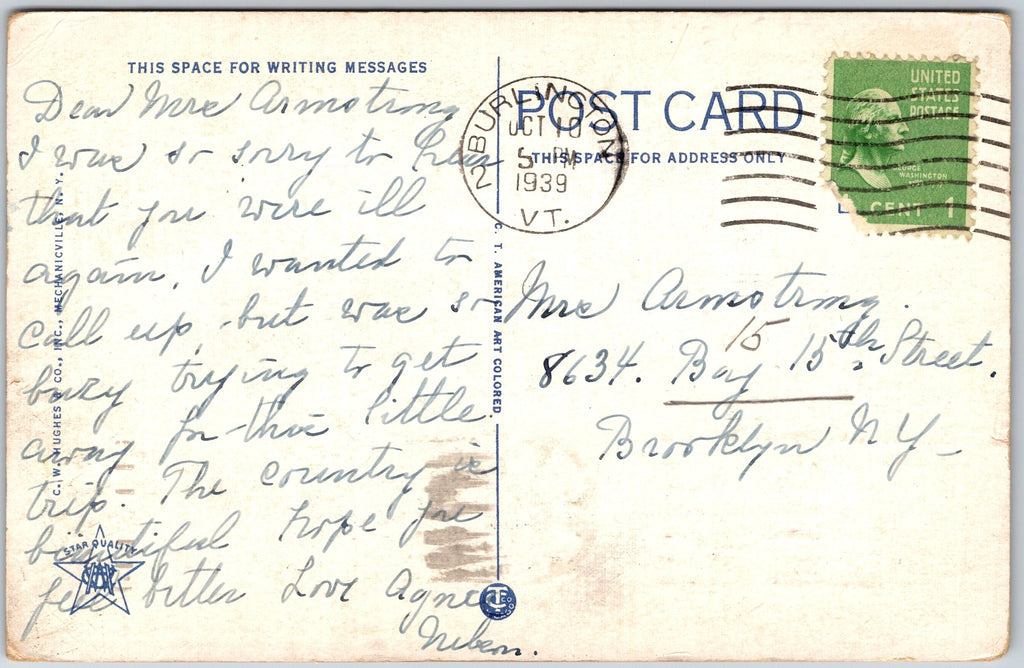 THIS SPACE FOR WRITING MESSAGES
Dear Mrs Armstrong
I was so sorry to hear
that you were ill
again, I wanted to
call up, but was so
busy trying to get
away for this little
trip. The country is
beautiful hope you
feel better Love Agnes
Nelson.
C. W. HUGHES & CO., INC., MECHANICVILLE, N. Y.
STAR QUALITY
C. T. AMERICAN ART COLORED
POST CARD
THIS SPACE FOR ADDRESS ONLY
BURLINGTON 2
OCT 10
5 PM
1939
VT.
UNITED
STATES
POSTAGE
GEORGE
WASHINGTON
CENT 1
Mrs Armstrong.
15
8634. Bay 15th Street.
Brooklyn NY